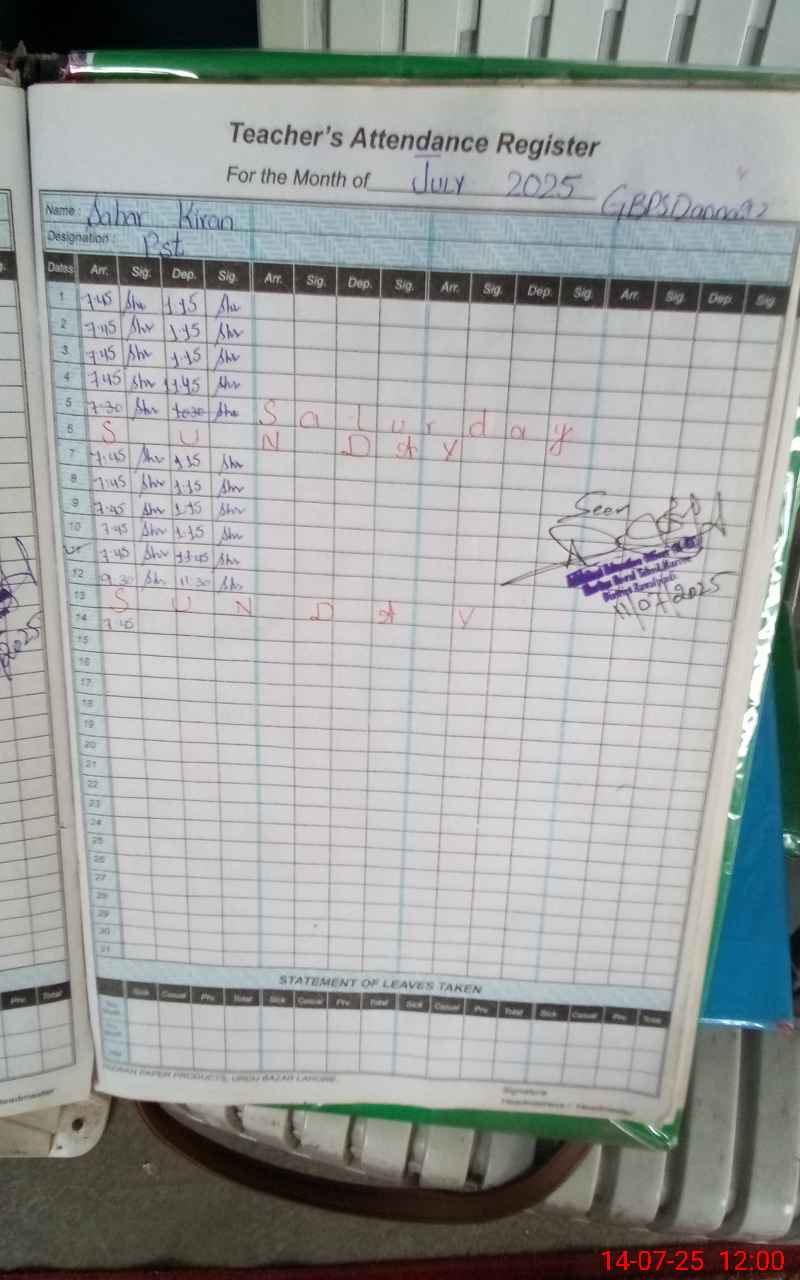 Teacher's Attendance Register
For the Month of July 2025 GBPS
Name : Sabar Kiran
Designation : Pst
Dates Arr. Sig. Dep. Sig. Arr. Sig. Dep. Sig. Arr. Sig. Dep. Sig. Arr. Sig. Dep. Sig
1 7:45 1.15
2 7:45 1.15
3 7:45 1.15
4 7:45 11.45
5 7:30 10:30 Saturday
6 SUNDAY
7 7:45 1.15
8 7:45 1.15
9 7:45 1.15
Seen
10 7:45 1.15
11 7:45 11:45
12 9:30 11:30
District Rawalpindi
11/07/2025
13 SUNDAY
14 7:45
15
16
17
18
19
20
21
22
23
24
25
26
27
28
29
30
31
STATEMENT OF LEAVES TAKEN
Sick Casual Prv. Total Sick Casual Prv. Total Sick Casual Prv. Total Sick Casual Prv. Total
PAPER PRODUCTS, URDU BAZAR LAHORE.
Signature
Headmistress / Headmaster
Prv. Total
2025
14-07-25 12:00